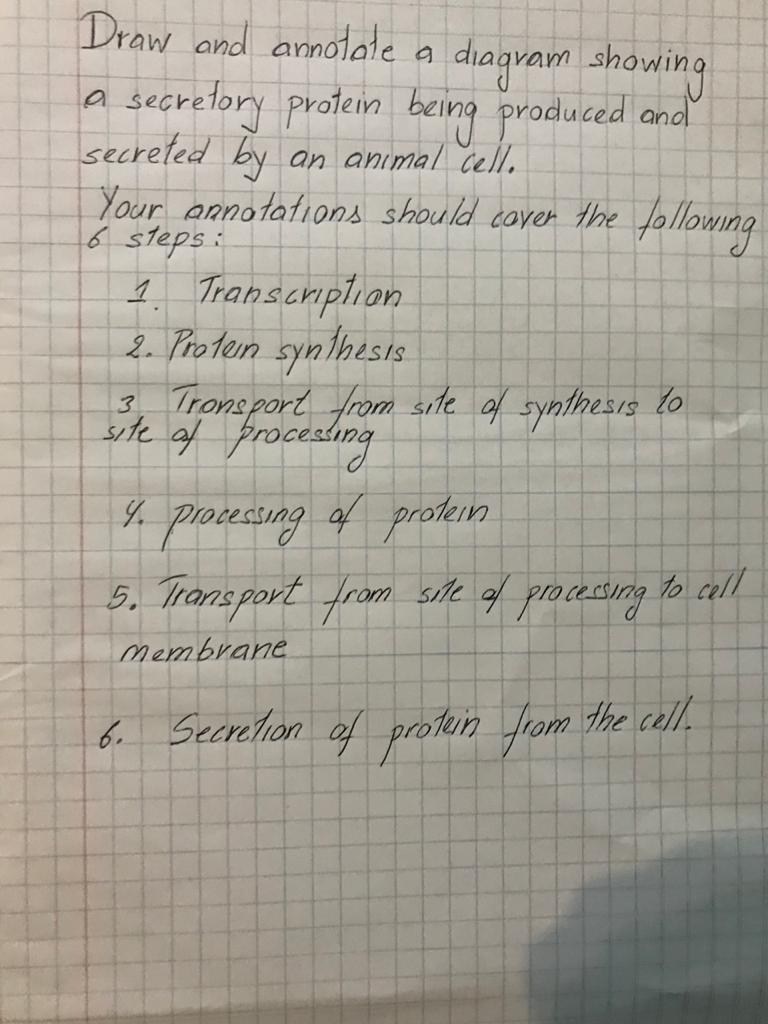 Draw and annotate a diagram showing
a secretory protein being produced and
secreted by an animal cell.
Your annotations should cover the following
6 steps:
1. Transcription
2. Protein synthesis
3 Transport from site of synthesis to
site of processing
4. processing of protein
5. Transport from site of processing to cell
membrane
6. Secretion of protein from the cell.